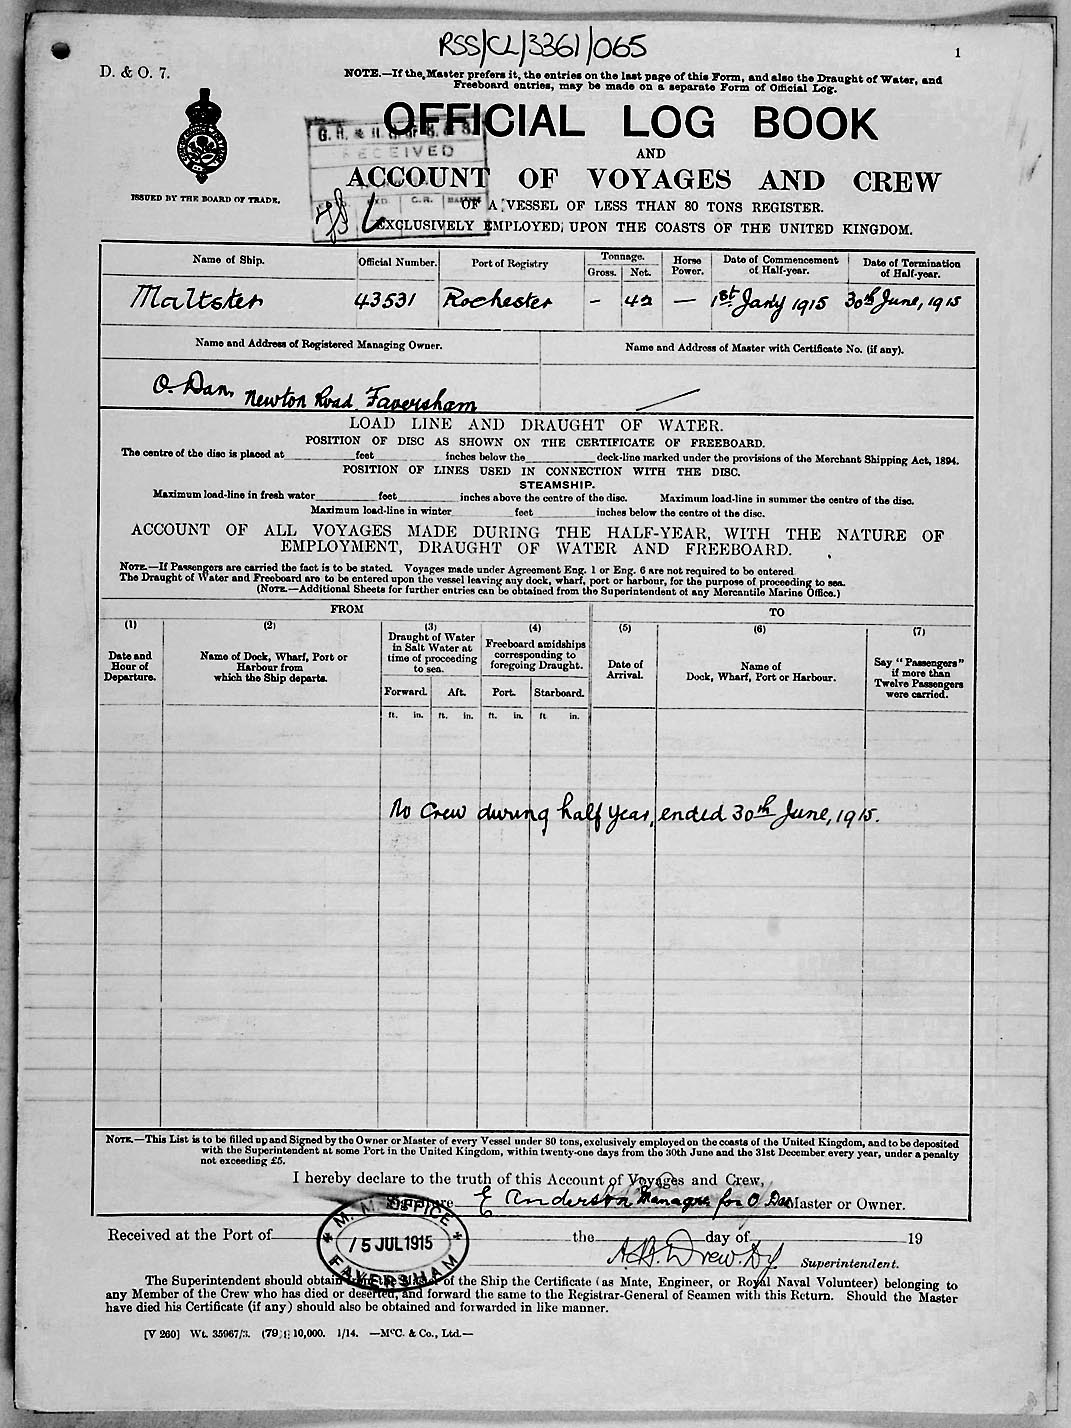 RSS/CL/3361/065
1
D. & O. 7.
NOTE.—If the Master prefers it, the entries on the last page of this Form, and also the Draught of Water, and
Freeboard entries, may be made on a separate Form of Official Log.
OFFICIAL LOG BOOK
AND
RECEIVED
ACCOUNT OF VOYAGES AND CREW
ISSUED BY THE BOARD OF TRADE.
OF A VESSEL OF LESS THAN 80 TONS REGISTER.
EXCLUSIVELY EMPLOYED UPON THE COASTS OF THE UNITED KINGDOM.
Name of Ship. Official Number. Port of Registry Tonnage. Gross. Net. Horse Power. Date of Commencement of Half-year. Date of Termination of Half-year.
Maltster 43531 Rochester – 42 — 1st Jany 1915 30th June, 1915
Name and Address of Registered Managing Owner. Name and Address of Master with Certificate No. (if any).
O. Dan, Newton Road, Faversham
LOAD LINE AND DRAUGHT OF WATER.
POSITION OF DISC AS SHOWN ON THE CERTIFICATE OF FREEBOARD.
The centre of the disc is placed at feet inches below the deck-line marked under the provisions of the Merchant Shipping Act, 1894.
POSITION OF LINES USED IN CONNECTION WITH THE DISC.
STEAMSHIP.
Maximum load-line in fresh water feet inches above the centre of the disc. Maximum load-line in summer the centre of the disc.
Maximum load-line in winter feet inches below the centre of the disc.
ACCOUNT OF ALL VOYAGES MADE DURING THE HALF-YEAR, WITH THE NATURE OF
EMPLOYMENT, DRAUGHT OF WATER AND FREEBOARD.
NOTE.—If Passengers are carried the fact is to be stated. Voyages made under Agreement Eng. 1 or Eng. 6 are not required to be entered
The Draught of Water and Freeboard are to be entered upon the vessel leaving any dock, wharf, port or harbour, for the purpose of proceeding to sea.
(NOTE.—Additional Sheets for further entries can be obtained from the Superintendent of any Mercantile Marine Office.)
FROM TO
(1) (2) (3) (4) (5) (6) (7)
Date and Hour of Departure.
Name of Dock, Wharf, Port or Harbour from which the Ship departs.
Draught of Water in Salt Water at time of proceeding to sea.
Freeboard amidships corresponding to foregoing Draught.
Date of Arrival.
Name of Dock, Wharf, Port or Harbour.
Say "Passengers" if more than Twelve Passengers were carried.
Forward. Aft. Port. Starboard.
ft. in. ft. in. ft. in. ft in.
No Crew during half year, ended 30th June, 1915.
NOTE.—This List is to be filled up and Signed by the Owner or Master of every Vessel under 80 tons, exclusively employed on the coasts of the United Kingdom, and to be deposited
with the Superintendent at some Port in the United Kingdom, within twenty-one days from the 30th June and the 31st December every year, under a penalty
not exceeding £5.
I hereby declare to the truth of this Account of Voyages and Crew,
Signature E Anderson Manager for O Dan Master or Owner.
M. M. OFFICE
15 JUL 1915
FAVERSHAM
Received at the Port of the day of 19
A. H. Drew. Dy Superintendent.
The Superintendent should obtain from the Master of the Ship the Certificate (as Mate, Engineer, or Royal Naval Volunteer) belonging to
any Member of the Crew who has died or deserted, and forward the same to the Registrar-General of Seamen with this Return. Should the Master
have died his Certificate (if any) should also be obtained and forwarded in like manner.
[V 260] Wt. 35967/3. (79) 10,000. 1/14. —McC. & Co., Ltd.—